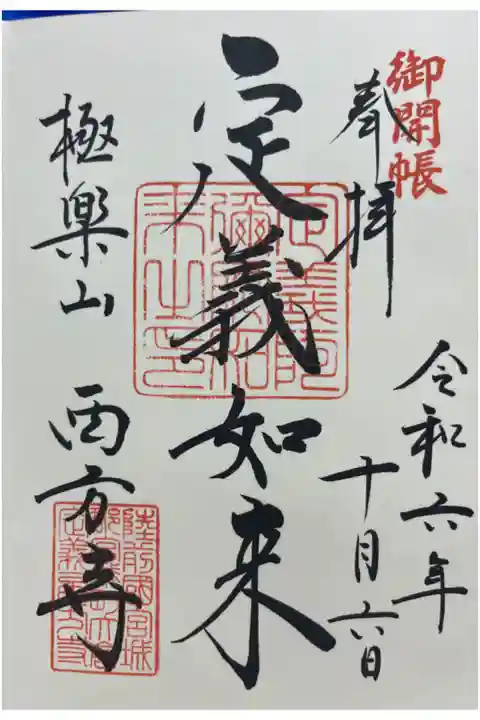 御開帳
奉拝
令和六年
十月六日
定義如来
極楽山 西方寺